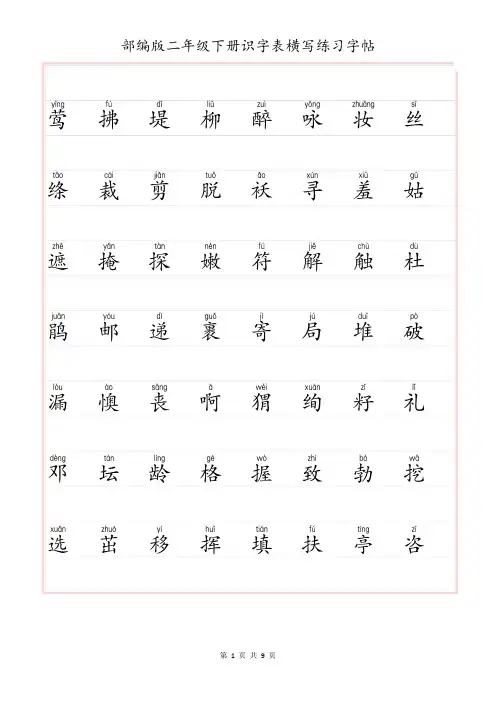 部编版二年级下册识字表横写练习字帖
yīng fú dī liǔ zuì yǒng zhuāng sī
莺 拂 堤 柳 醉 咏 妆 丝
tāo cái jiǎn tuō ǎo xún xiū gū
绦 裁 剪 脱 袄 寻 羞 姑
zhē yǎn tàn nèn fú jiě chù dù
遮 掩 探 嫩 符 解 触 杜
juān yóu dì guǒ jì jú duī pò
鹃 邮 递 裹 寄 局 堆 破
lòu ào sàng ā wèi xuàn zǐ lǐ
漏 懊 丧 啊 猬 绚 籽 礼
dèng tán líng gé wò zhì bó wā
邓 坛 龄 格 握 致 勃 挖
xuǎn zhuó yí huī tián fú tíng zī
选 茁 移 挥 填 扶 亭 咨
第 1 页 共 9 页